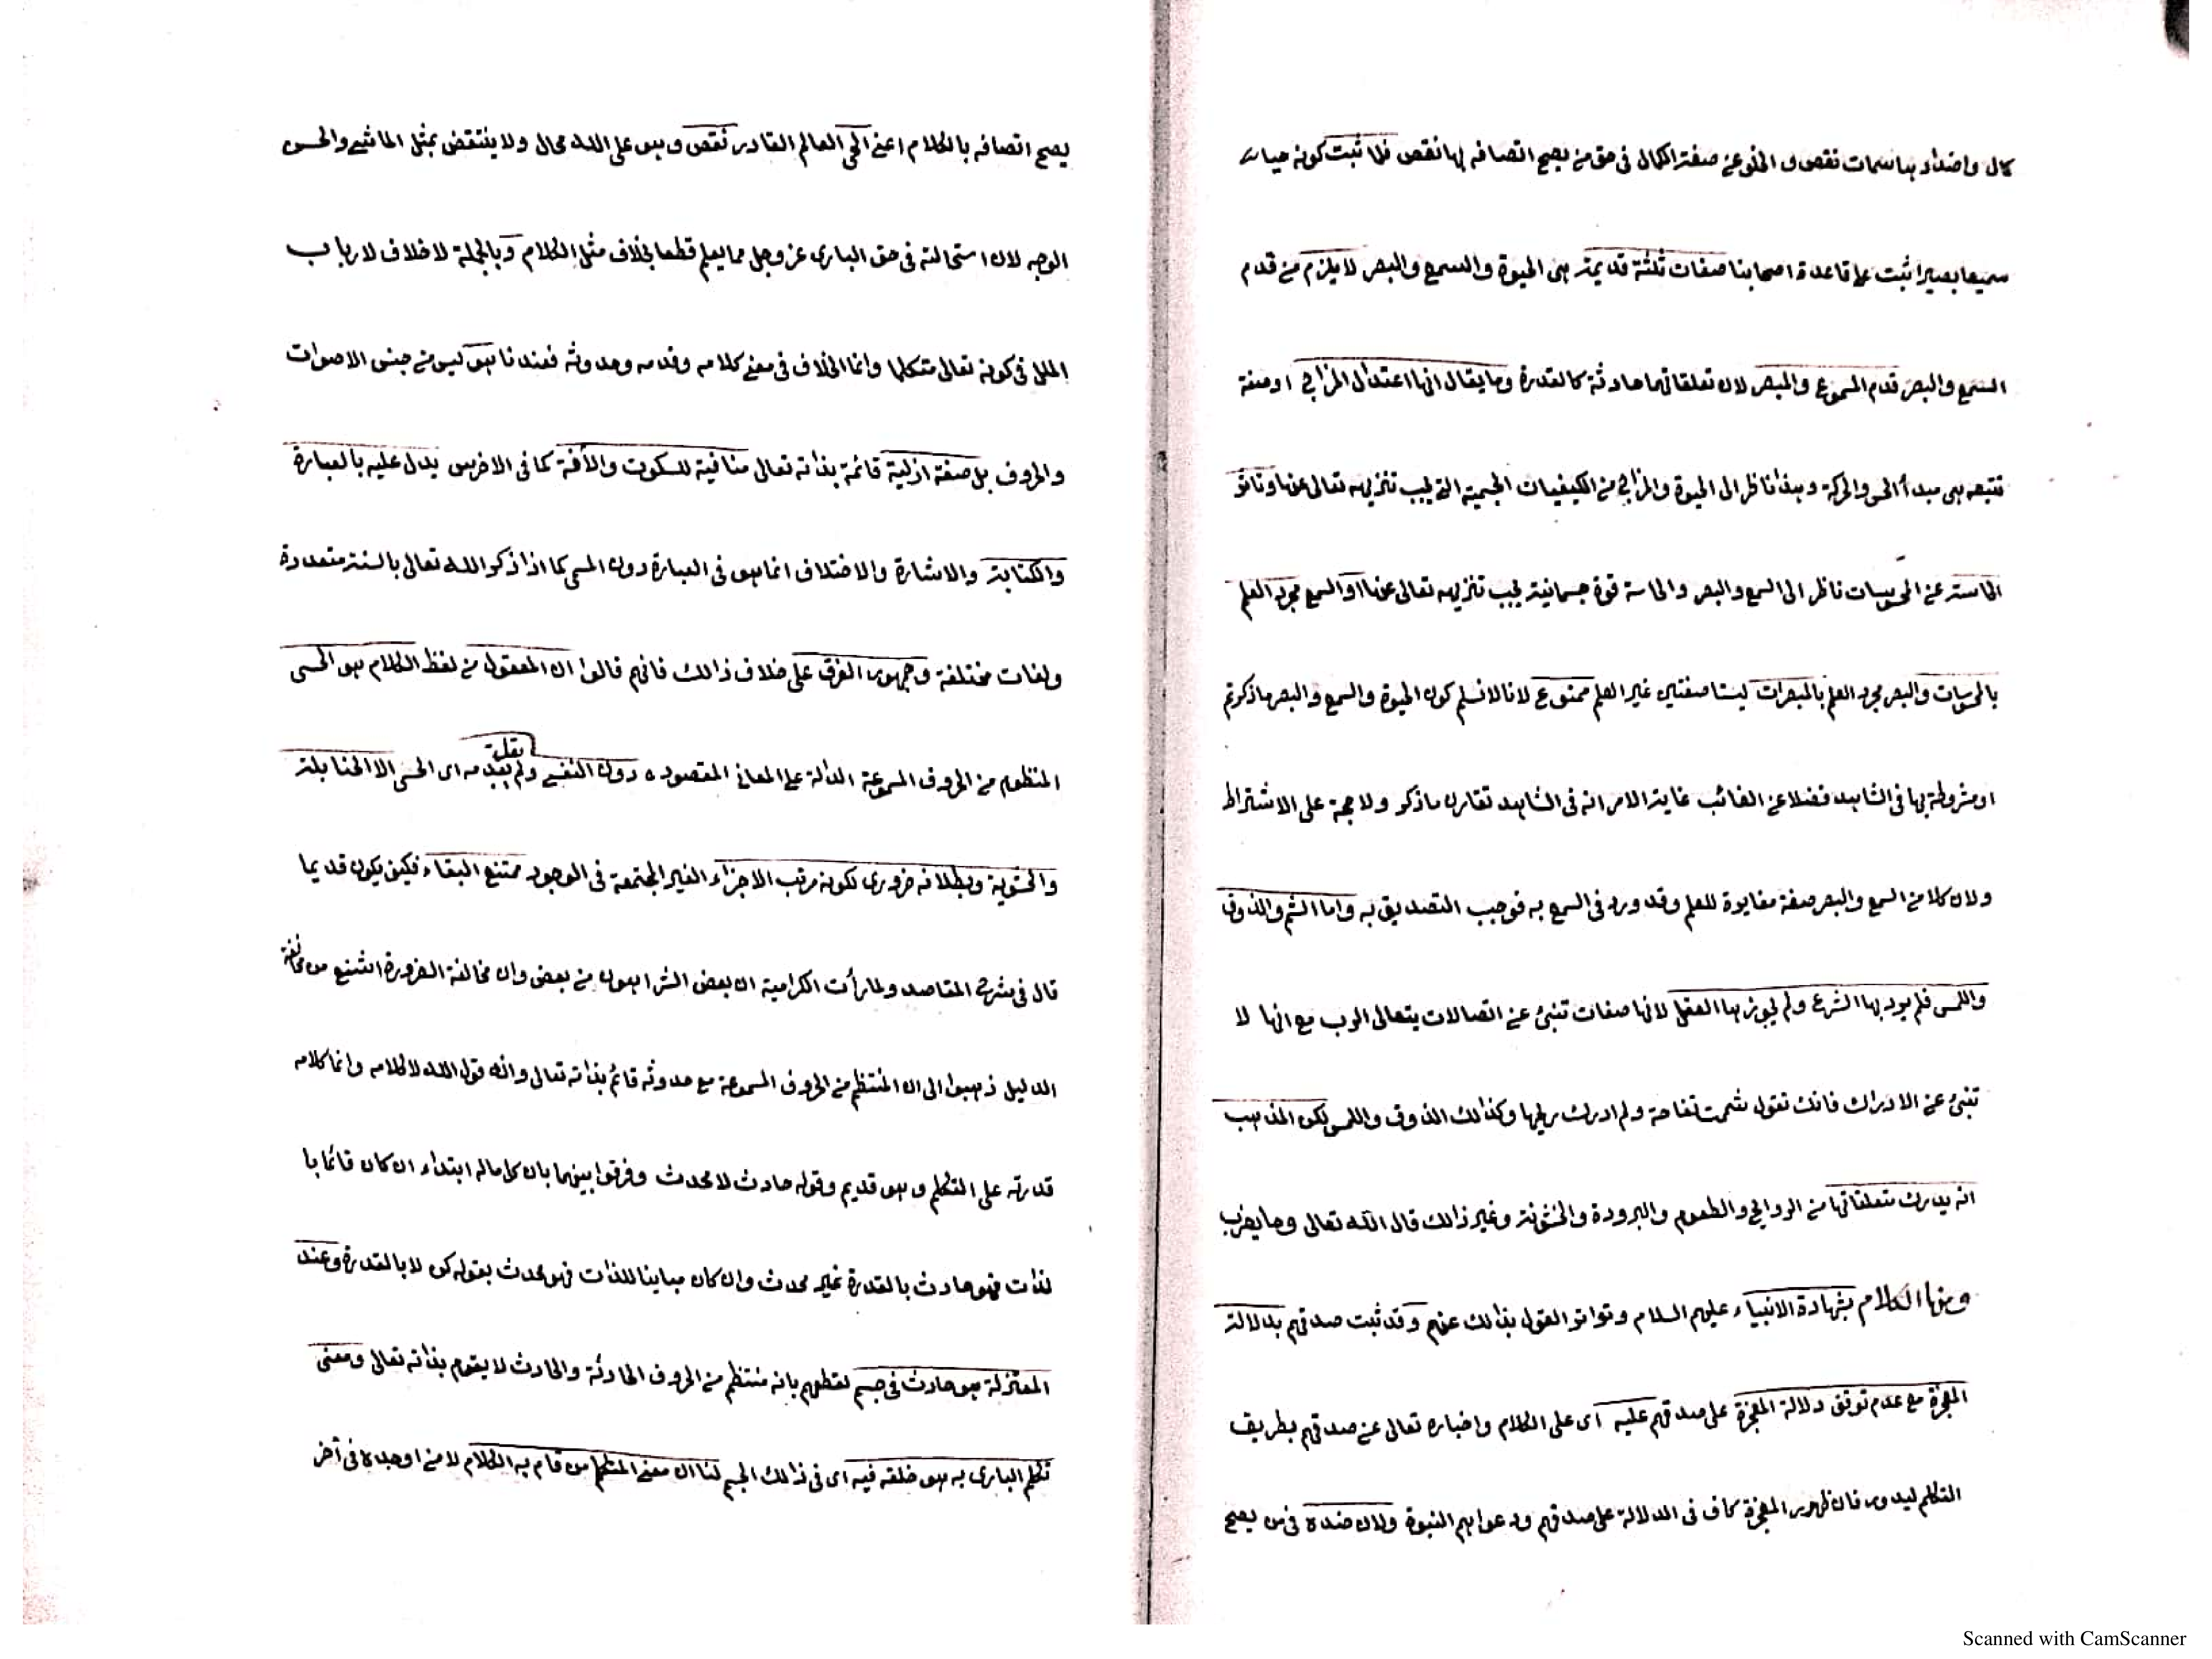 كمال واضداد بها سمات نقص و الخلو عن صفة الكمال فى حق من يصح اتصافه بها نقص فلما ثبت كونه حيا
سميعا بصيرا ثبت على قاعدة اصحابنا صفات ثلثة قديمة هى الحيوة والسمع والبصر لا يلزم من قدم
السمع والبصر قدم المسموع والمبصر لان تعلقاتهما حادثة كالقدرة وما يقال انها اعتدال المزاج او صفة
تتبعه هى مبدأ الحس والحركة وهذا ناظر الى الحيوة والمزاج من الكيفيات الجسمية التى يجب تنزيهه تعالى عنها وتاثر
الحاسة عن المحسوسات ناظر الى السمع والبصر والحاسة قوة جسمانية يجب تنزيهه تعالى عنها او السمع مجرد العلم
بالمحسوسات والبصر مجرد العلم بالمبصرات ليستا صفتين غير العلم ممنوع لانا لا نسلم كون الحيوة والسمع والبصر ما ذكرتم
او مشروطة بها فى الشاهد فضلا عن الغائب غاية الامر انه فى الشاهد تقارن ما ذكر ولا حجة على الاشتراط
ولان كلا من السمع والبصر صفة مغايرة للعلم وقد ورد فى السمع به فوجب التصديق به واما الشم والذوق
واللمس فلم يرد بها الشرع ولم يجوزها العقل لانها صفات تنبئ عن اتصالات يتعالى الرب مع انها لا
تنبئ عن الادراك فانك تقول شممت تفاحة ولم ادرك ريحها وكذالك الذوق واللمس لكن المذهب
انه يدرك متعلقاتها من الروايح والطعوم والبرودة والخشونة وغير ذالك قال الله تعالى وما يعزب
ومنها الكلام بشهادة الانبياء عليهم السلام وتواتر القول بذالك عنهم وقد ثبت صدقهم بدلالة
المعجزة مع عدم توقف دلالة المعجزة على صدقهم عليه اى على الكلام واخباره تعالى عن صدقهم بطريق
التكلم ليدور فان ظهور المعجزة كاف فى الدلالة على صدقهم ودعواهم النبوة ولان ضده فى من يصح
يصح اتصافه بالكلام اعنى الحى العالم القادر نقص وهو على الله محال ولا ينتقض بمثل الماشى والحسن
الوجه لان استحالته فى حق البارى عز وجل مما يعلم قطعا بخلاف مثل الكلام وبالجملة لا خلاف لارباب
الملل فى كونه تعالى متكلما وانما الخلاف فى معنى كلامه وقدمه وحدوثه فعندنا هو ليس من جنس الاصوات
والحروف بل صفة ازلية قائمة بذاته تعالى منافية للسكوت والأفة كما فى الاخرس يدل عليه بالعبارة
والكتابة والاشارة والاختلاف انما هو فى العبارة دون المسمى كما اذا ذكر الله تعالى بالسنة متعددة
ولغات مختلفة وجمهور الفرق على خلاف ذالك فانهم قالوا ان المعقول من لفظ الكلام هو الحسى
المنظوم من الحروف المسموعة الدالة على المعانى المقصوده دون النفسى ولم يقل بقدمه اى الحسى الا الحنابلة
والحشوية وبطلانه ضرورى لكونه مرتب الاجزاء الغير المجتمعة فى الوجود ممتنع البقاء فكيف يكون قديما
قال فى شرح المقاصد ولما رأت الكرامية ان بعض الشر اهون من بعض وان مخالفة الضرورة اشنع من مخالفة
الدليل ذهبوا الى ان المنتظم من الحروف المسموعة مع حدوثه قائم بذاته تعالى وانه قول الله لا كلامه وانما كلامه
قدرته على التكلم وهو قديم وقوله حادث لا محدث وفرقوا بينهما بان كل ماله ابتداء ان كان قائما با
لذات فهو حادث بالقدرة غير محدث وان كان مباينا للذات فهو محدث بقوله كن لا بالقدرة وعند
المعتزلة هو حادث فى جسم لقطعهم بانه منتظم من الحروف الحادثة والحادث لا يقوم بذاته تعالى ومعنى
تكلم البارى به هو خلقه فيه اى فى ذالك الجسم لنا ان معنى المتكلم من قام به الكلام لا من اوجده فى أخر
Scanned with CamScanner